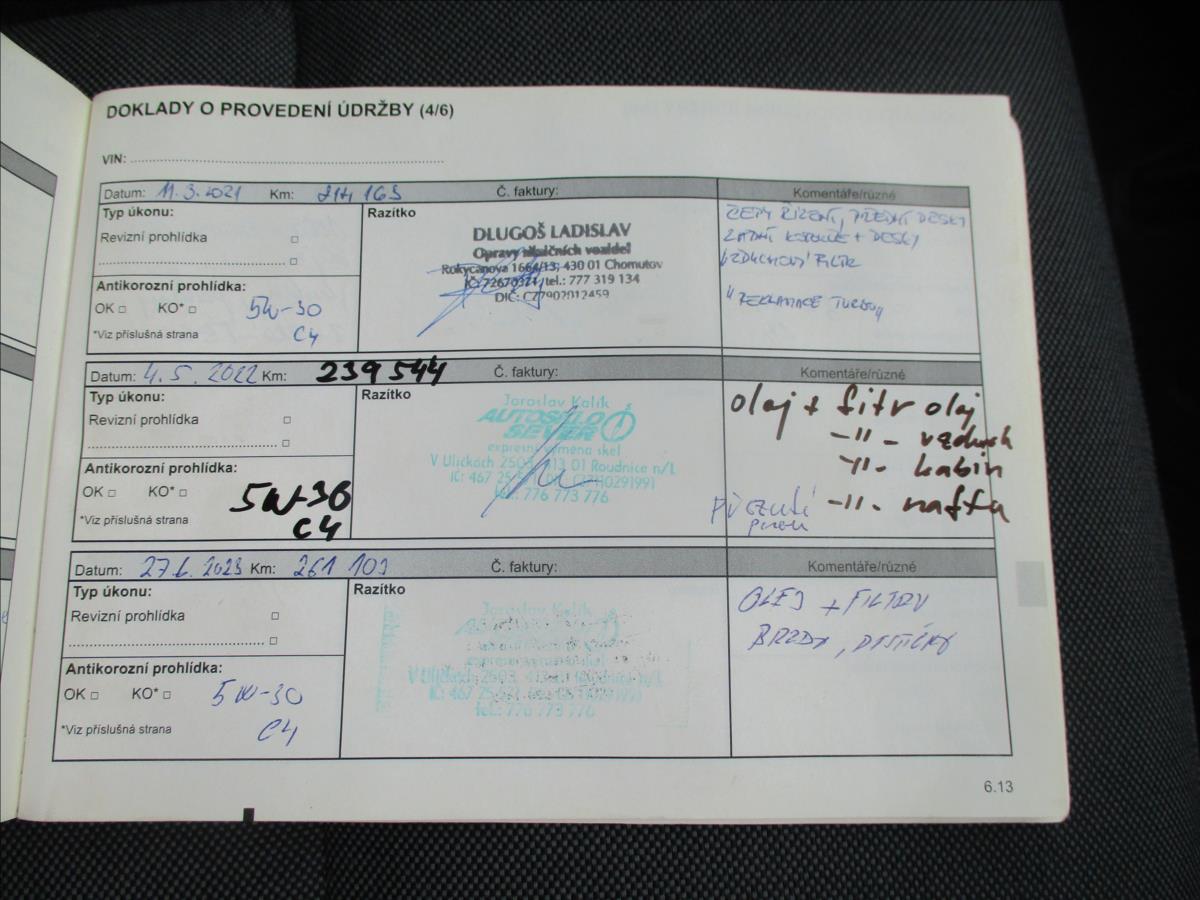 DOKLADY O PROVEDENÍ ÚDRŽBY (4/6)
VIN:
Datum: 11.3.2021 Km: 214 165 Č. faktury: Komentáře/různé
Typ úkonu:
Revizní prohlídka
Antikorozní prohlídka:
OK KO*
*Viz příslušná strana
5W-30
C4
Razítko
DLUGOŠ LADISLAV
Opravy silničních vozidel
Rokycanova 1664/13, 430 01 Chomutov
IČ: 72670321, tel.: 777 319 134
DIČ: CZ7902012459
ČEPY ŘÍZENÍ, PŘEDNÍ DESKY
ZADNÍ KOTOUČE + DESKY
VZDUCHOVÝ FILTR
"REKLAMACE TURBO"
Datum: 4.5.2022 Km: 239 544 Č. faktury: Komentáře/různé
Typ úkonu:
Revizní prohlídka
Antikorozní prohlídka:
OK KO*
*Viz příslušná strana
5W-30
C4
Razítko
Jaroslav Kalík
AUTOSKLO
SEVER
expresní výměna skel
V Uličkách 2603, 413 01 Roudnice n/L
IČ: 467 25
tel.: 776 773 776
olaj + filtr olaj
-11- vzduch
-11- kabin
-11- nafta
Datum: 27.6.2023 Km: 261 103 Č. faktury: Komentáře/různé
Typ úkonu:
Revizní prohlídka
Antikorozní prohlídka:
OK KO*
*Viz příslušná strana
5W-30
C4
Razítko
Jaroslav Kalík
expresní výměna skel
V Uličkách 2603, 413 01 Roudnice n/L
IČ: 467 25
tel.: 776 773 776
OLEJ + FILTRY
BRZDY, DESTIČKY
6.13